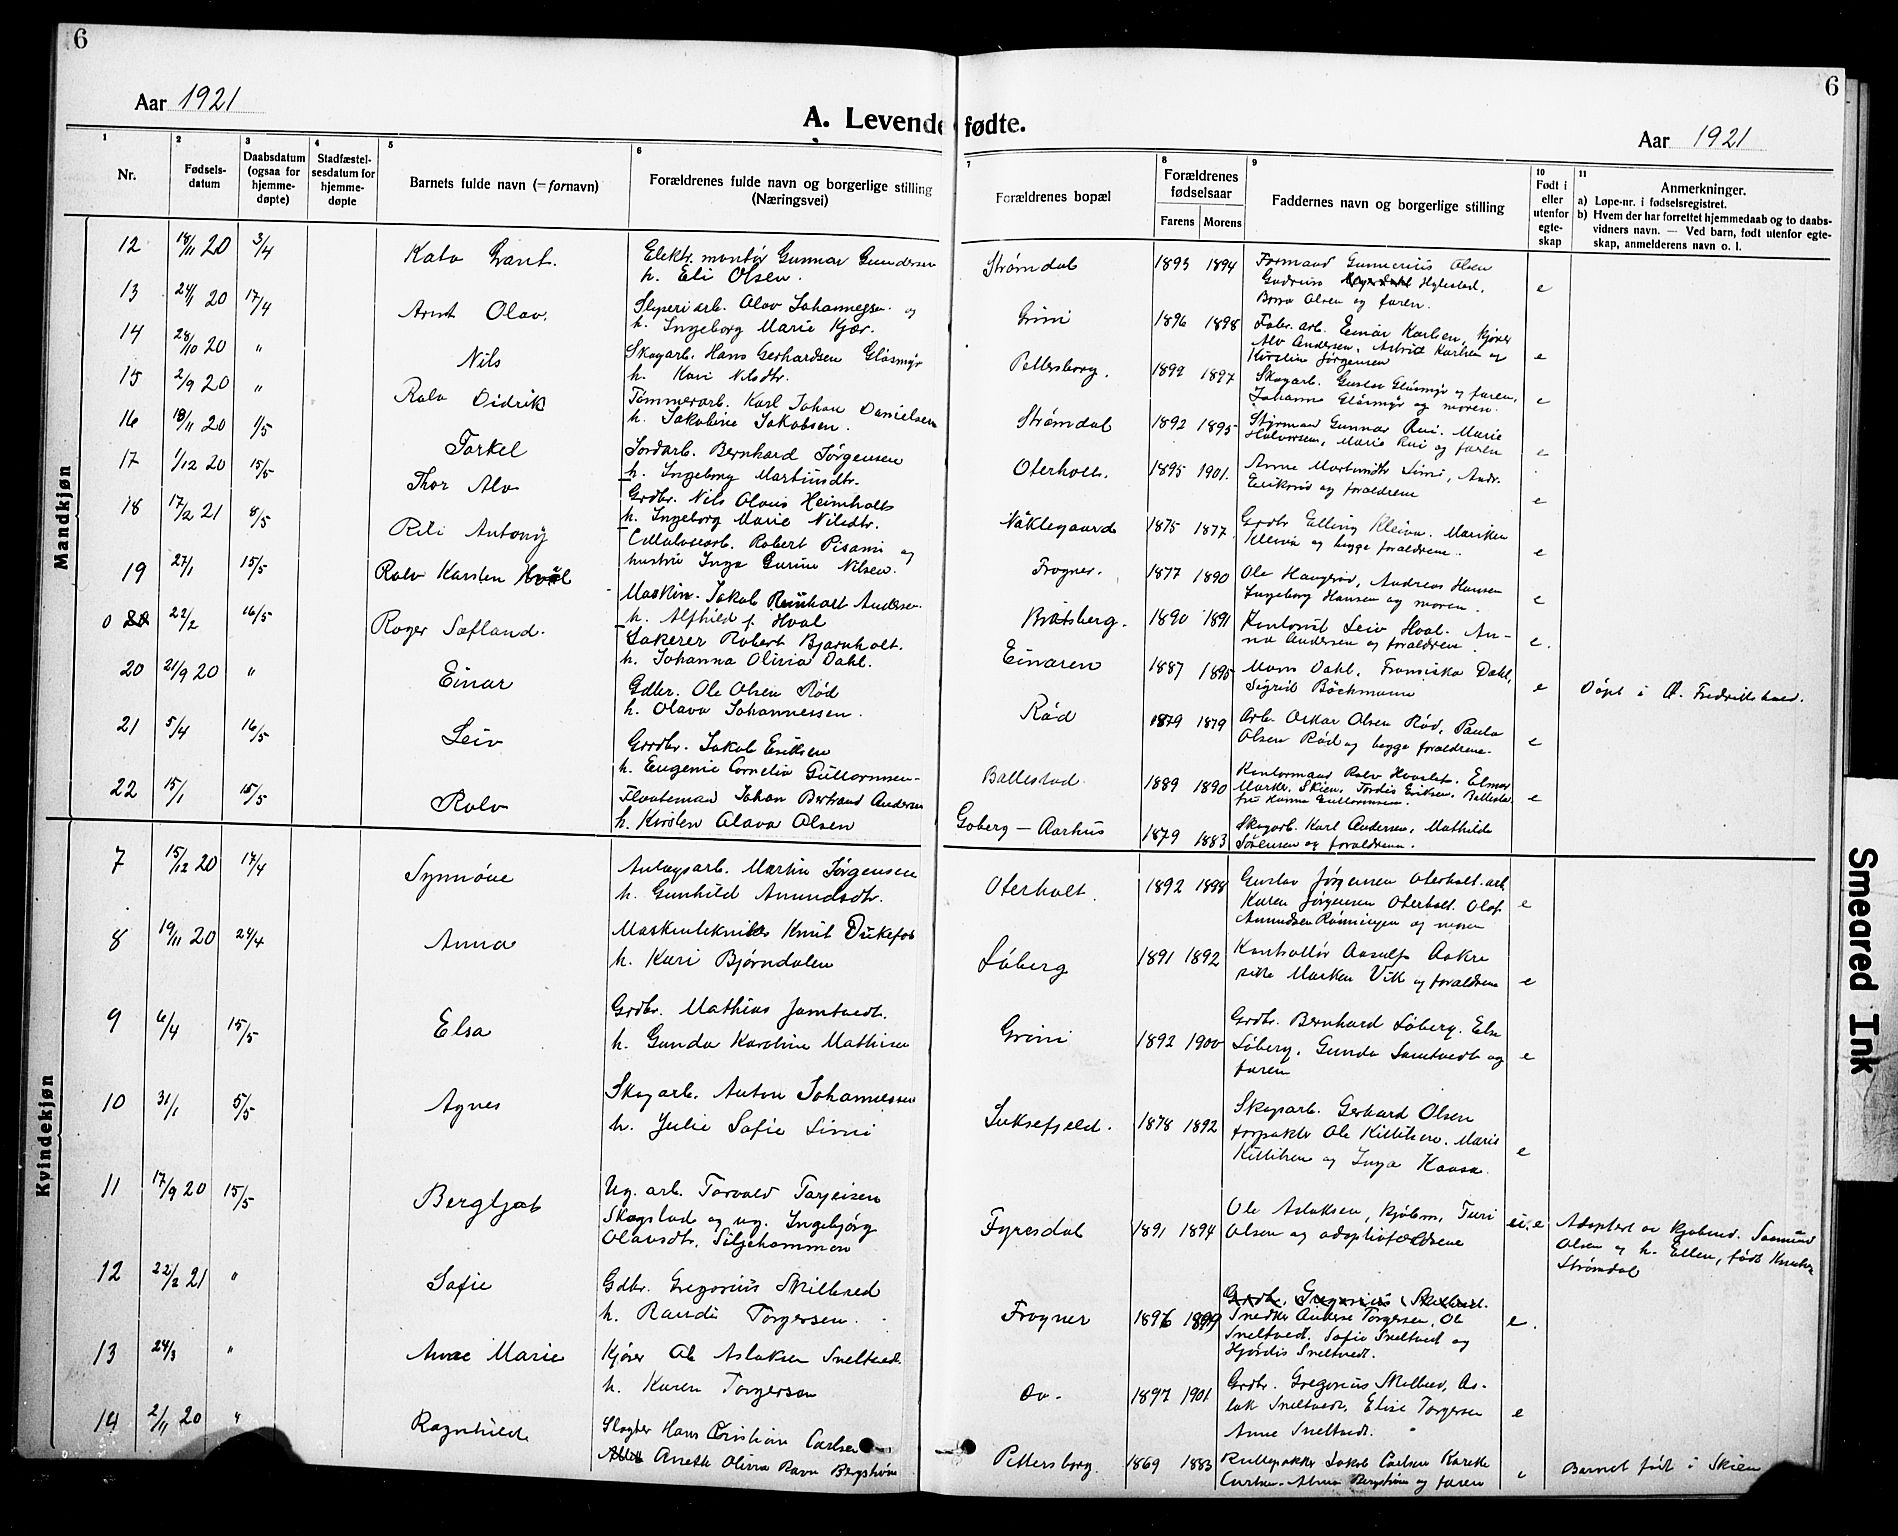 6
6
Aar 1921
A. Levende fødte.
Aar 1921
1
Nr.
2
Fødsels-
datum
3
Daabsdatum
(ogsaa for
hjemme-
døpte)
4
Stadfæstel-
sesdatum for
hjemme-
døpte
5
Barnets fulde navn (= fornavn)
6
Forældrenes fulde navn og borgerlige stilling
(Næringsvei)
7
Forældrenes bopæl
8
Forældrenes
fødselsaar
Farens Morens
9
Faddernes navn og borgerlige stilling
10
Født i
eller
utenfor
egte-
skap
11
Anmerkninger.
a) Løpe-nr. i fødselsregistret.
b) Hvem der har forrettet hjemmedaab og to daabs-
vidners navn. — Ved barn, født utenfor egte-
skap, anmelderens navn o. l.
Mandkjøn
12 18/11 20 3/4 Grant. Elektr. montør Gunnar Gundersen
h. Eli Olsen. Strømdal 1893 1894 Formand Gunnerius Olsen
Gudrun Hylestad,
Borga Olsen og faren. e
13 24/1 20 17/4 Arnt Olav. Sliperiarb. Olav Johannessen og
h. Ingeborg Marie Kjær. Grini 1896 1898 Fabr. arb. Einar Karlsen, Kjører
Alv Andersen, Astrid Karlsen og
Kirstine Jørgensen e
14 28/10 20 " Nils Skogarb. Hans Gerhardsen Glåsmyr
h. Kari Nilsdtr. Pettersborg. 1892 1897 Skogarb. Gustav Glåsmyr og faren,
Johanne Glåsmyr og moren. e
15 2/9 20 " Rolv Didrik Tømmerarb. Karl Johan Danielsen
h. Jakobine Jakobsen. Strømdal 1892 1895 Styrmand Gunnar Rui. Marie
Halvorsen, Marie Rui og faren e
16 18/11 20 1/5 Torkel Jordarb. Bernhard Jørgensen
h. Ingeborg Martinsdtr. Oterholt. 1895 1901. Anne Martinsdtr Simi, Andr.
og forældrene e
17 1/12 20 15/5 Thor Alv Grdbr. Nils Olaus Heimholt
h. Ingeborg Marie Nilsdtr. Nåklegaard 1875 1877 Grdbr Elling Kleiva. Marken
Kleiva og begge forældrene. e
18 17/2 21 8/5 Antony Cellulosearb. Robert Pisani og
hustru Inga Gurine Nilsen. Frogner. 1877 1890 Ole Haugerød, Andreas Hansen
Ingeborg Hansen og moren. e
19 27/1 15/5 Rolv Karsten Hval Maskin. Jakob Reinholt Andersen
h. Alfhild f. Hval Bratsberg. 1890 1891 Kontorist Leiv Hval. An-
na Andersen og forældrene. e.
0 22/2 16/5 Roger Søfland. Lakerer Robert Bjørnholt.
h. Johanna Olivia Dahl. Einaren 1887 1895 Mons Dahl, Fransiska Dahl,
Sigrid Böckmann e Døpt i Fredrikshald.
20 21/9 20 " Einar Gdbr. Ole Olsen Rød
h. Olava Johannessen. Rød 1879 1879 Arb. Oskar Olsen Rød, Paula
Olsen Rød og begge forældrene. e
21 5/4 16/5 Leiv Grdbr. Jakob Eriksen
h. Eugenie Cornelia Guttormsen Ballestad 1889 1890 Kontormand Rolv Elmar
Skien, Tordis Eriksen. Ballestad
fru Hanna Guttormsen. e
22 15/1 15/5 Rolv Flooteman Johan Bertrand Andersen
h. Kirsten Olava Olsen Goberg — Aarhus 1879 1883 Skogarb. Karl Andersen, Mathilde
Sørensen og forældrene.
Kvindekjøn
7 15/12 20 17/4 Synnøve Anlægsarb. Martin Jørgensen
h. Gunhild Amundsdtr. Oterholt. 1892 1898 Gustav Jørgensen Oterholt. arb.
Karen Jørgensen Oterholt. Olaf
Amundsen Rønningen og moren e
8 19/11 20 24/4 Anna Maskintekniker Knut Dukefos
h. Kari Bjørndalen Løberg 1891 1892 Kontrollør Aasulf
Marken Vik og forældrene e
9 6/4 15/5 Elsa Grdbr. Mathias Jamtvedt.
h. Gunda Karoline Mathisen Grini 1892 1900 Grdbr. Bernhard Løberg. Else
Løberg. Gunda Jamtvedt og
faren e
10 31/1 5/5 Agnes Skogarb. Anton Johannessen
h. Julie Sofie Simi Luksefjeld. 1878 1892 Skogarb. Gerhard Olsen
forpakter Ole Kittilsen. Maris
Kittilsen og Inga Kaasa. e
11 17/9 20 15/5 Bergljot Ug. arb. Torvald Torjeisen
Skogstad og ug. Ingebjørg
Olavsdtr. Siljehommen Fyresdal 1891 1894 Ole Aslaksen, kjøbm, Turi
Olsen og adoptivforældrene u. e Adoptert av kjøbmd. Saamund
Olsen og h. Ellen, født Knutsen
Strømdal
12 22/2 21 " Sofie Gdbr. Gregorius Skilbred
h. Randi Torgersen. Frogner 1896 1899 Grdbr. Gregorius Skilbred.
Snedker Anders Torgersen, Ole
Sneltvedt. Sofie Sneltvedt og
Hjørdis Sneltvedt. e.
13 24/3 " Anne Marie Kjører Ole Aslaksen Sneltvedt.
h. Karen Torgersen Do. 1897 1901 Grdbr. Gregorius Skilbred, As-
lak Sneltvedt, Elise Torgersen
Anne Sneltvedt. e
14 2/11 20 " Ragnhild Hans Cristian Carlsen
Anette Olivia Ravn Bergstrøm Pettersborg. 1869 1883 Jakob Carlsen
Carlsen. Alma Bergstrøm og faren e Barnet født i Skien
Smeared Ink